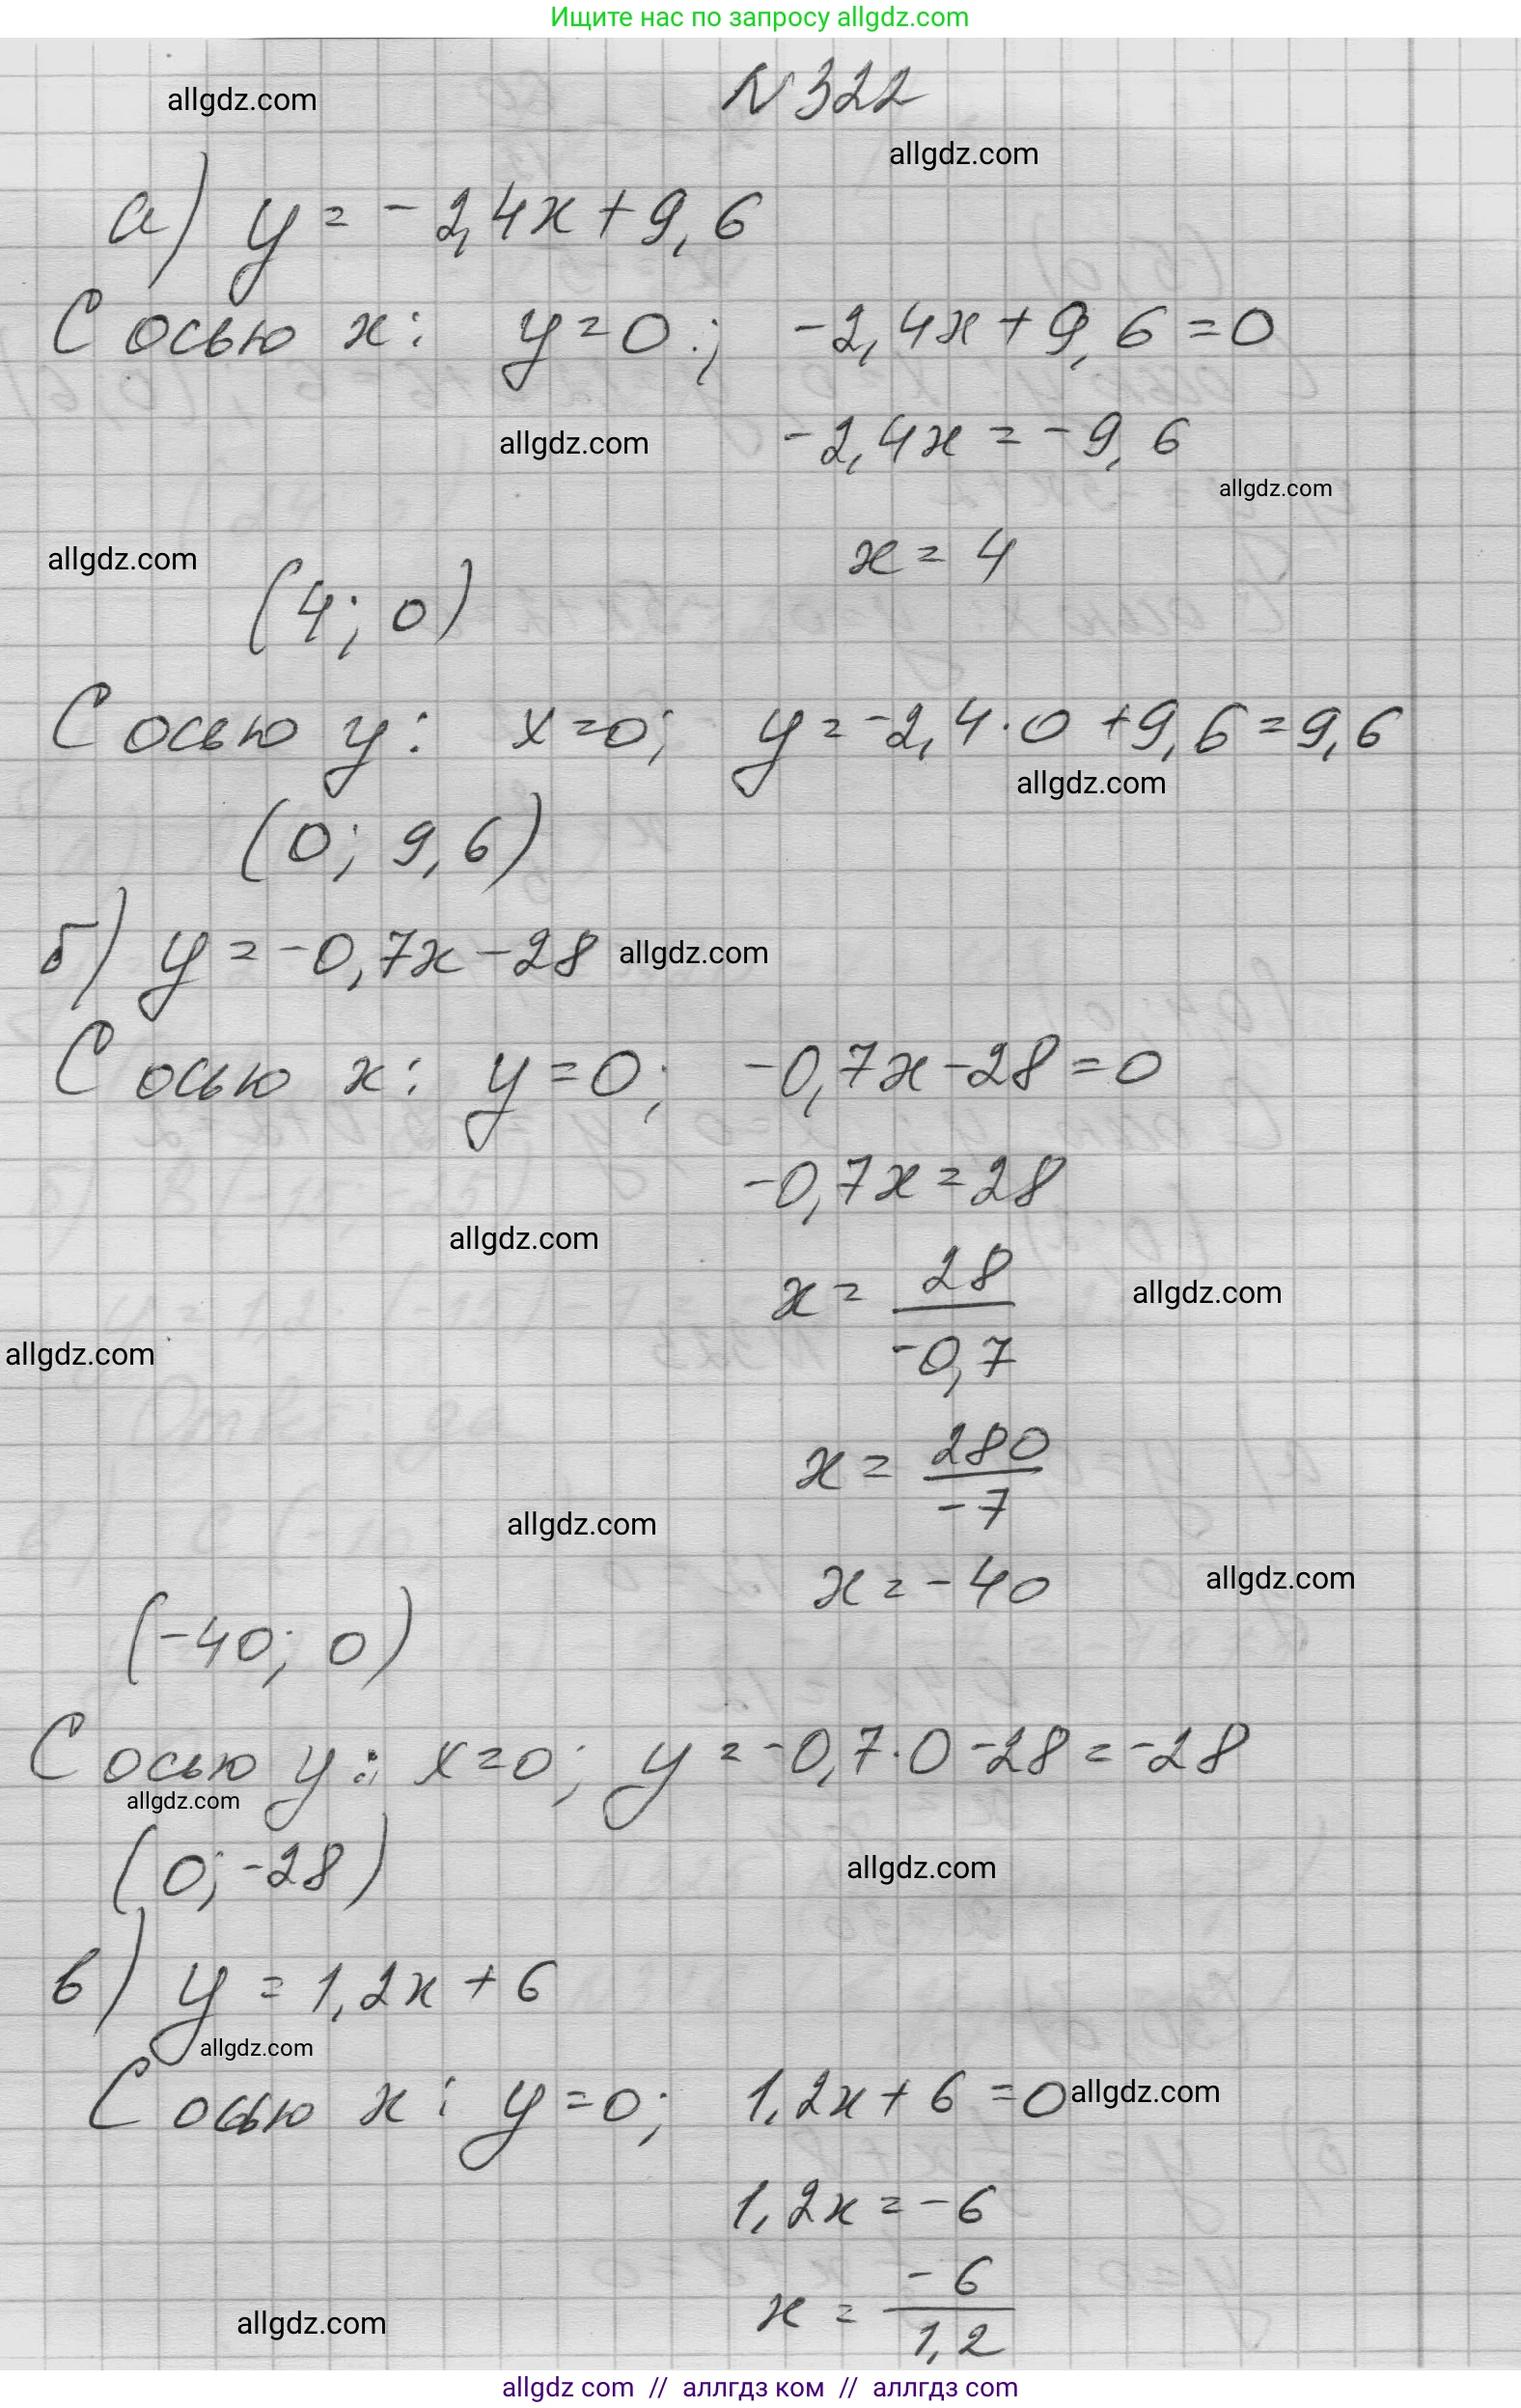 Ищите нас по запросу allgdz.com
allgdz.com
N 322
allgdz.com
а) y = -2,4x + 9,6
С осью x: y=0; -2,4x + 9,6 = 0
allgdz.com
-2,4x = -9,6
allgdz.com
allgdz.com
x = 4
(4; 0)
С осью y: x=0; y = -2,4·0 + 9,6 = 9,6
allgdz.com
(0; 9,6)
б) y = -0,7x - 28
allgdz.com
С осью x: y = 0; -0,7x - 28 = 0
-0,7x = 28
allgdz.com
x = 28/-0,7
allgdz.com
allgdz.com
x = 280/-7
allgdz.com
x = -40
allgdz.com
(-40; 0)
С осью y: x=0; y = -0,7·0 - 28 = -28
allgdz.com
(0; -28)
allgdz.com
в) y = 1,2x + 6
allgdz.com
С осью x: y = 0; 1,2x + 6 = 0
allgdz.com
1,2x = -6
x = -6/1,2
allgdz.com
allgdz com // аллгдз ком // аллгдз com